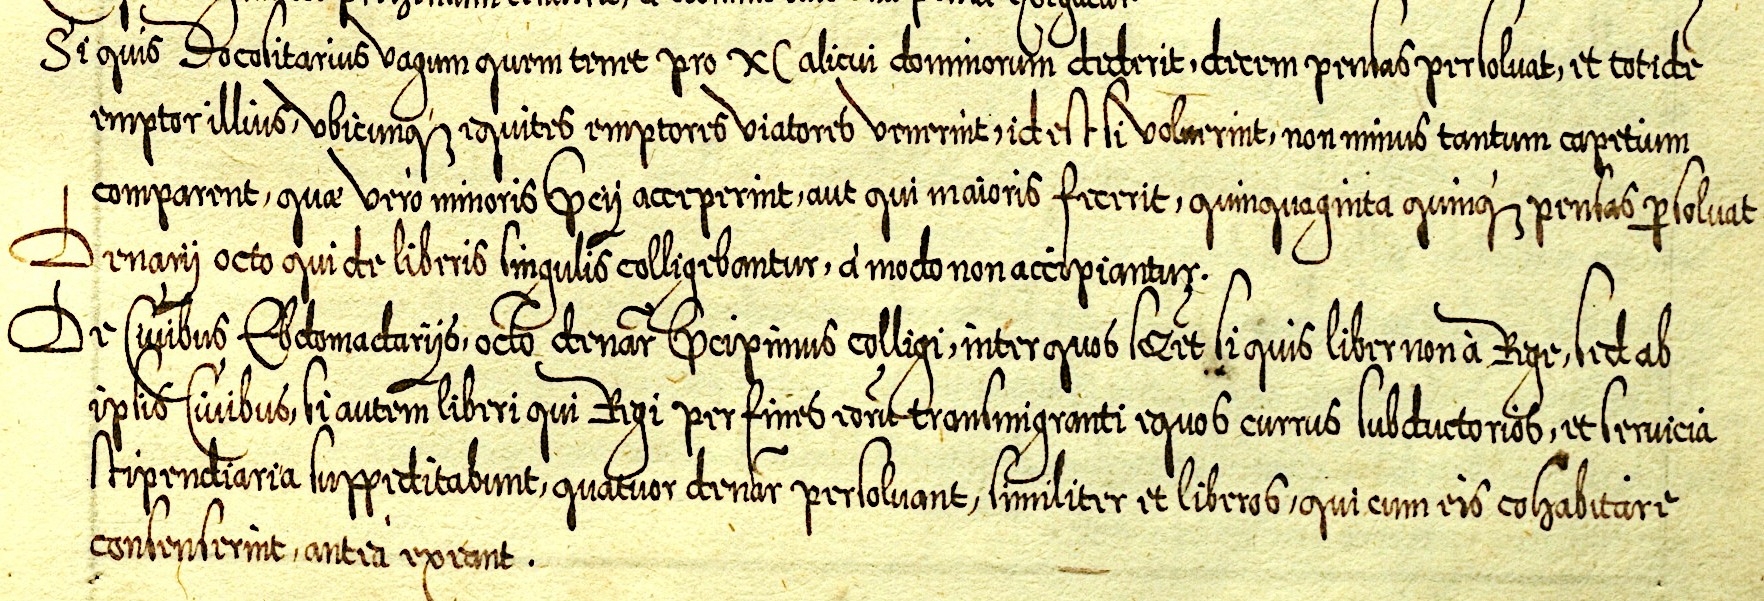 Si quis Docolitarius vagum quem tenet pro XC alicui dominorum dederit, decem pensas persoluat, et totidẽ
emptor illius, vbicunq3 equites emptores viatores venerint, id est si voluerint, non minus tantum capetium
comparent, quæ verò minoris p̃cij acceperint, aut qui maioris fecerit, quinquaginta quinq3 pensas ꝑsoluat
Denarij octo qui de liberis singulis colligebantur, à modo non accipiantur.
De Ciuibus Ebdomadarijs, octo denar̃ p̃cipimus colligi, inter quos si quis liber non à Rege, sed ab
ipsis Ciuibus, si autem liberi qui Regi per fines eorũ transmigranti equos currus subductorios, et seruicia
stipendiaria suppeditabunt, quatuor denar̃ persoluant, similiter et liberos, qui cum eis cohabitare
consenserint, anteà exeant.